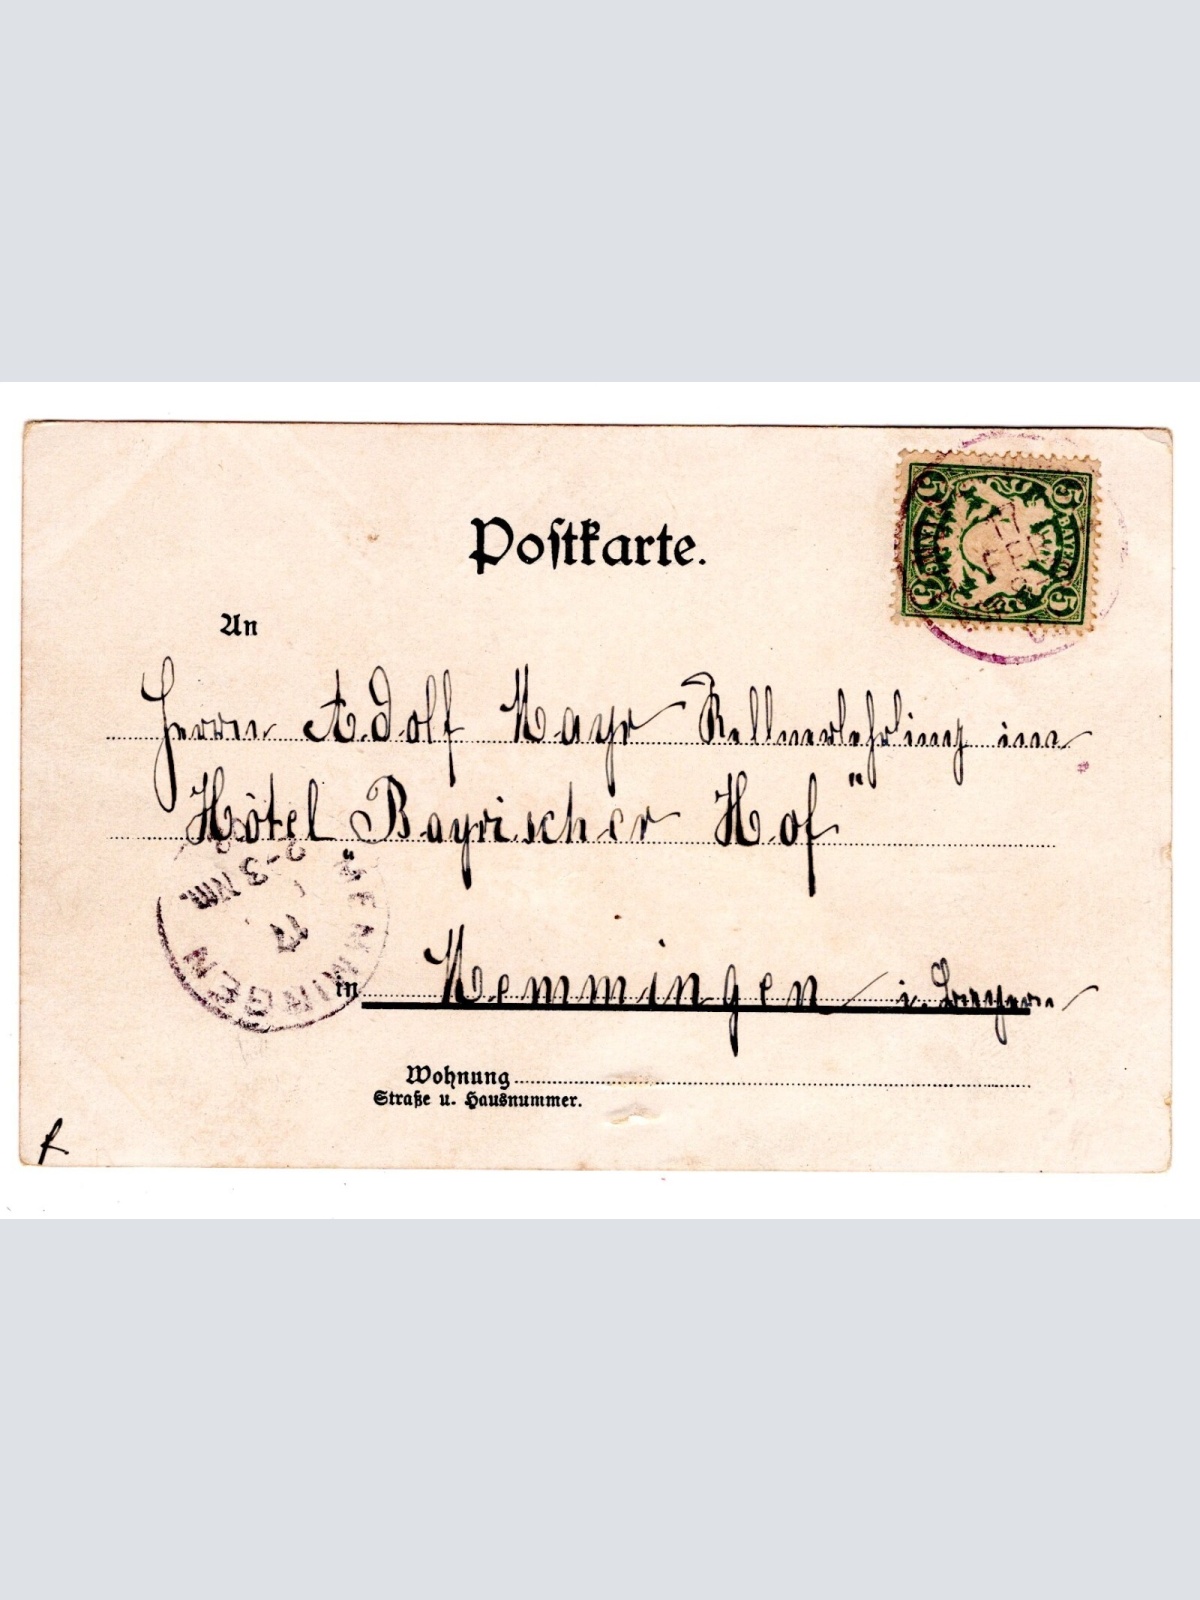 Postkarte.
5 5
BAYERN
5 5
An
Herrn Adolf Mayr Kellnerlehrling im
Hôtel „Bayrischer Hof"
2-3 Nm.
17
MEMMINGEN
in Memmingen i. Bayern
Wohnung
Straße u. Hausnummer.